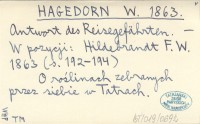 HAGEDORN W. 1863.
Antwort des Reisegefährten. –
W pozycji: Hildebrandt F. W.
1863 (s. 192-194)
O roślinach zebranych
przez siebie w Tatrach.
TM